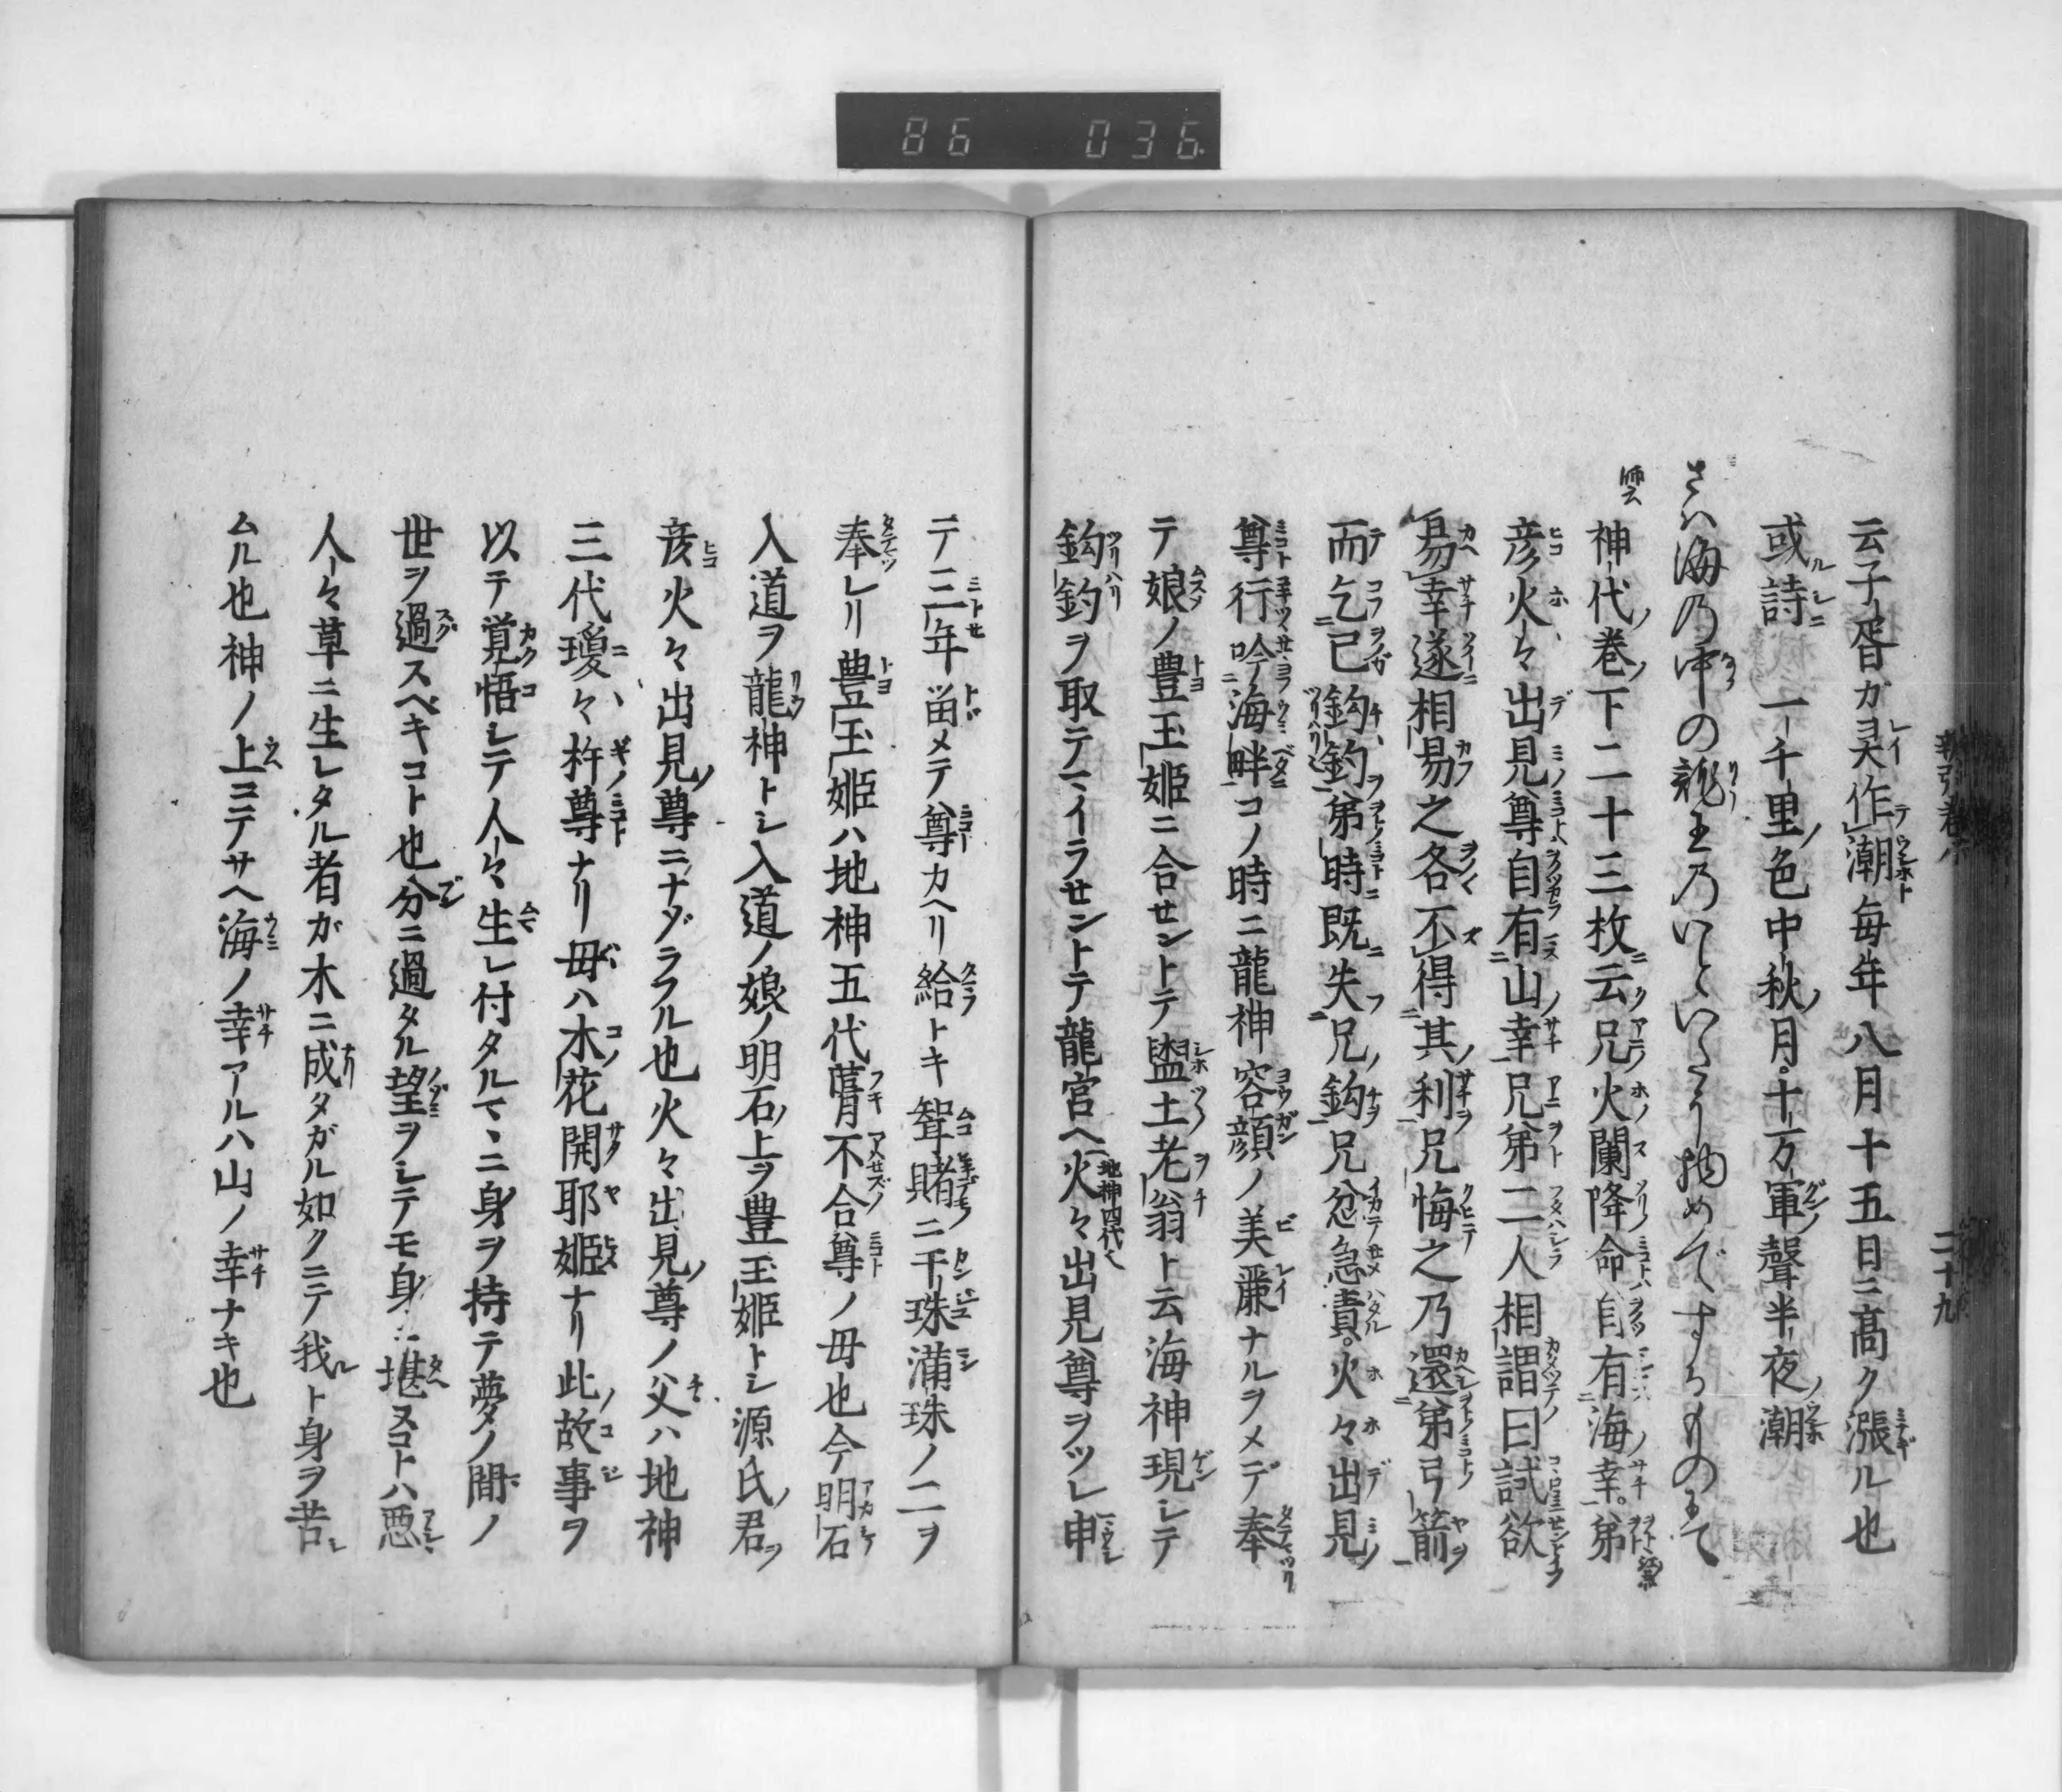 86 036
云子胥ガ灵作潮毎年八月十五日ニ高ク漲ル也
或詩 一千里色中秋月。十万軍聲半夜潮
さハ海乃中の龍王乃いといたう物めでするものにて
師云
神代巻ノ下二十三枚云兄火闌降命自有海幸。弟
彦火々出見尊自有山幸兄弟二人相謂曰試欲
易幸遂相易之各不得其利兄悔之乃還弟弓箭
而乞己鈎釣弟時既失兄鈎兄忿急責。火々出見
尊行吟海畔コノ時ニ龍神容顔ノ美麗ナルヲメデ奉
テ娘ノ豊玉姫ニ合セントテ盬土老翁ト云海神現シテ
鈎釣ヲ取テマイラセントテ龍宮ヘ火々出見尊ヲツレ申
地神四代ヘ
二十九
テ三年畄メテ尊カヘリ給トキ聟賭ニ干珠満珠ノ二ヲ
奉レリ豊玉姫ハ地神五代葺不合尊ノ母也今明石
入道ヲ龍神トシ入道ノ娘ノ明石ノ上ヲ豊玉姫トシ源氏ノ君ヲ
彦火々出見ノ尊ニナゾラフル也火々出見ノ尊ノ父ハ地神
三代瓊々杵尊ナリ母ハ木花開耶姫ナリ此故事ヲ
以テ覚悟シテ人々生レ付タルマヽニ身ヲ持テ夢ノ間ノ
世ヲ過スベキコト也分ニ過タル望ヲシテモ身ニ堪ヌコトハ悪シ
人々草ニ生レタル者が木ニ成タガル如クニテ我ト身ヲ苦シ
ムル也神ノ上ニテサヘ海ノ幸アルハ山ノ幸ナキ也